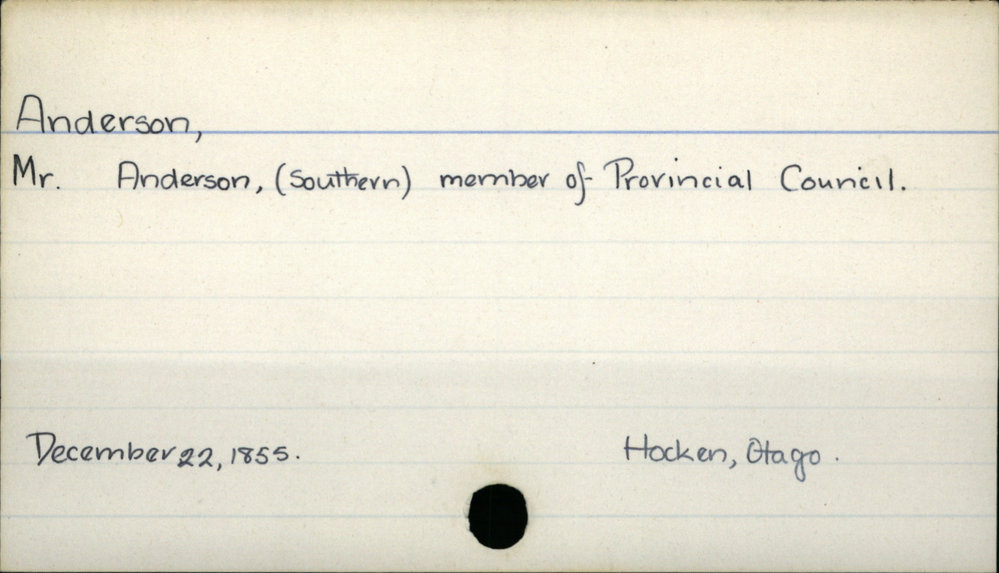 Anderson,
Mr. Anderson, (Southern) member of Provincial Council.
December 22, 1855. Hocken, Otago.